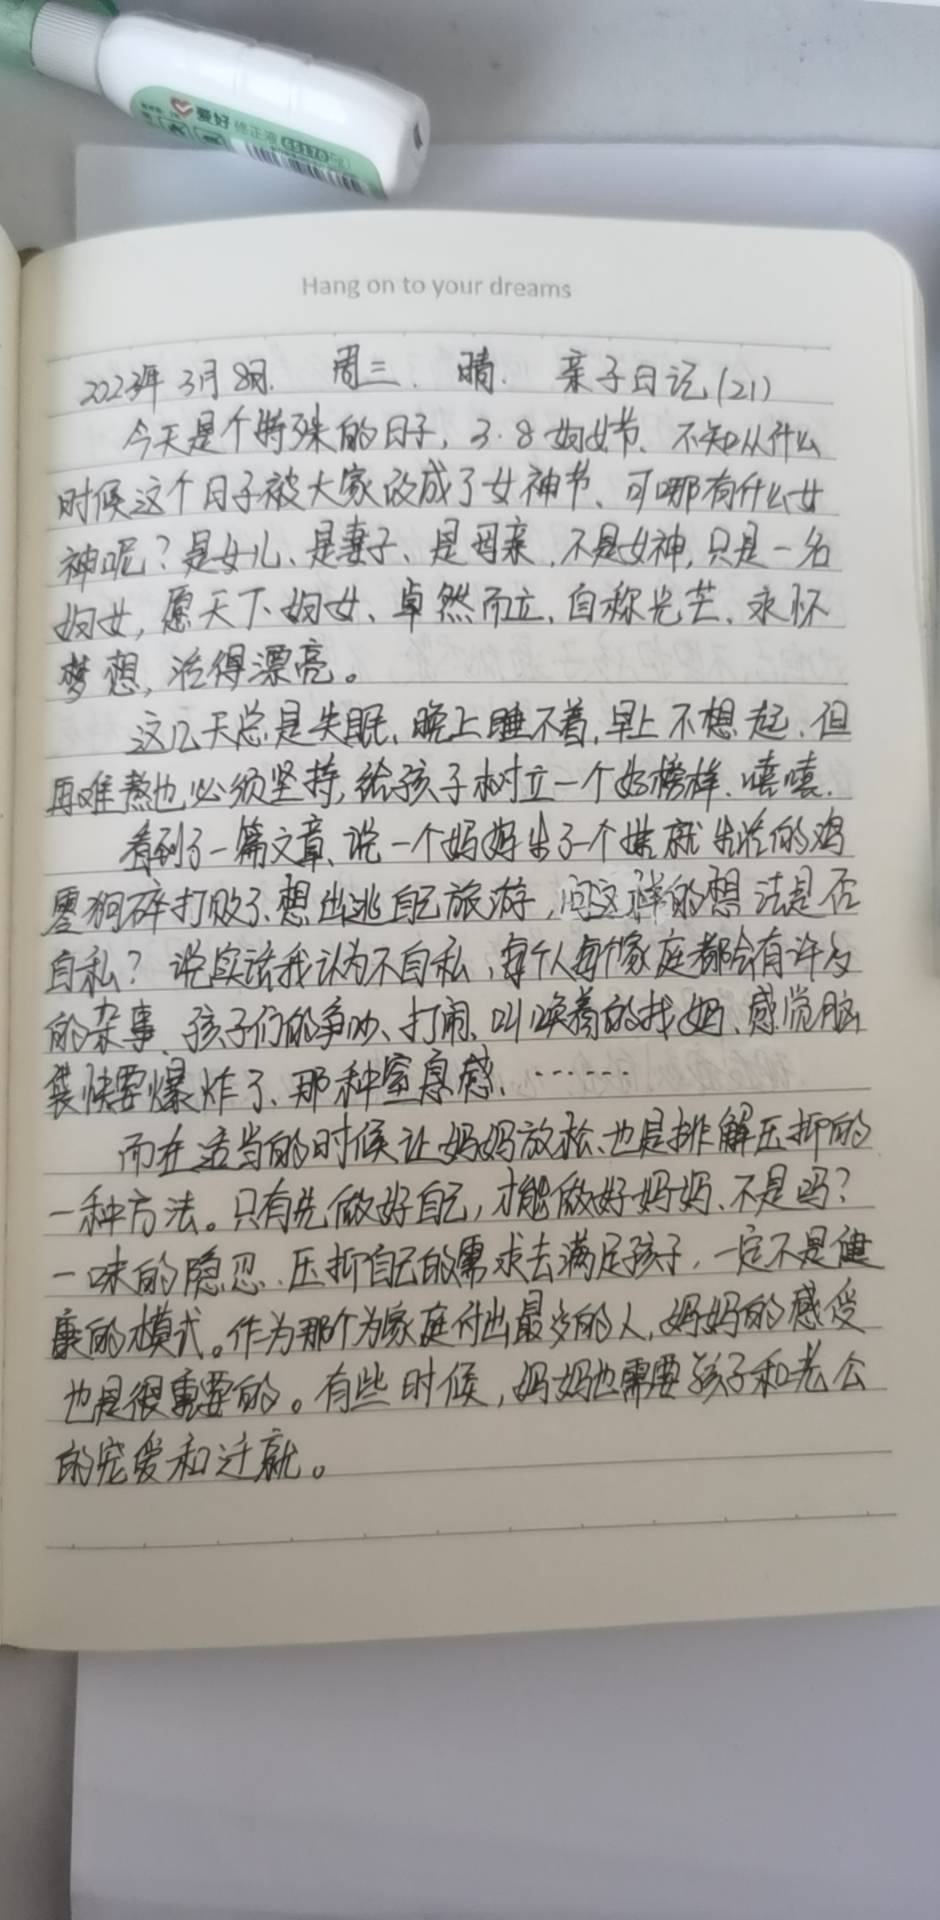 爱好 修正液 65170
Hang on to your dreams
2023年3月8日. 周三. 晴. 亲子日记(21)
今天是个特殊的日子, 3.8妇女节、不知从什么
时候这个日子被大家改成了女神节、可哪有什么女
神呢?是女儿、是妻子、是母亲,不是女神,只是一名
妇女,愿天下妇女、卓然而立、自称光芒、永怀
梦想,活得漂亮。
这几天总是失眠,晚上睡不着,早上不想起,但
再难熬也必须坚持,给孩子树立一个好榜样、嘻嘻.
看到了一篇文章、说一个妈妈生了一个娃就生活的鸡
零狗碎打败了、想出逃自己旅游,问这样的想法是否
自私?说实话我认为不自私,每个人每个家庭都会有许多
的杂事、孩子们的争吵、打闹、叫唤着的找妈、感觉脑
袋快要爆炸了、那种窒息感、……
而在适当的时候让妈妈放松、也是排解压抑的
一种方法。只有先做好自己,才能做好妈妈、不是吗?
一味的隐忍、压抑自己的需求去满足孩子,一定不是健
康的模式。作为那个为家庭付出最多的人,妈妈的感受
也是很重要的。有些时候,妈妈也需要孩子和老公
的宠爱和迁就。